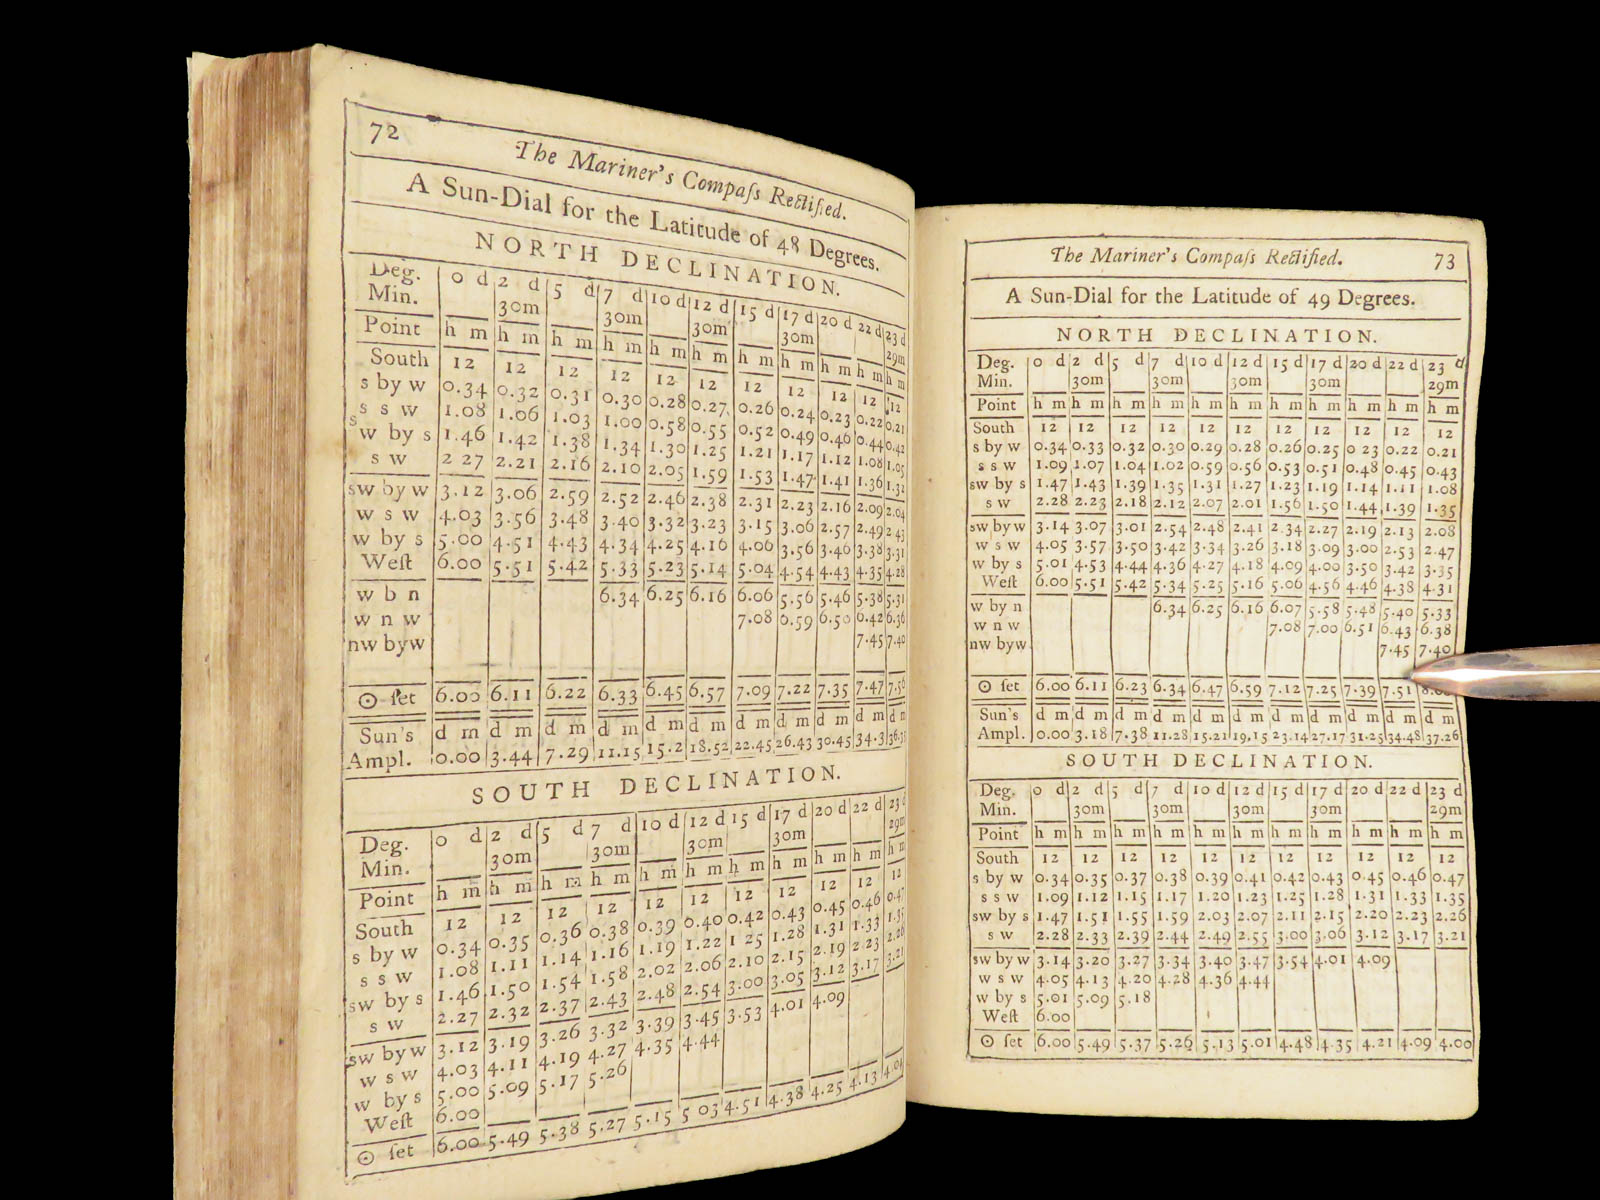 72
The Mariner's Compaſs Rectified.
A Sun-Dial for the Latitude of 48 Degrees.
NORTH DECLINATION.
Deg. 0 d 2 d 5 d 7 d 10 d 12 d 15 d 17 d 20 d 22 d 23 d
Min. 30m 30m 30m 30m 29m
Point h m h m h m h m h m h m h m h m h m h m h m
South 12 12 12 12 12 12 12 12 12 12 12
s by w 0.34 0.32 0.31 0.30 0.28 0.27 0.26 0.24 0.23 0.22 0.21
s s w 1.08 1.06 1.03 1.00 0.58 0.55 0.52 0.49 0.46 0.44 0.42
s w by s 1.46 1.42 1.38 1.34 1.30 1.25 1.21 1.17 1.12 1.08 1.05
s w 2 27 2.21 2.16 2.10 2.05 1.59 1.53 1.47 1.41 1.36 1.32
sw by w 3.12 3.06 2.59 2.52 2.46 2.38 2.31 2.23 2.16 2.09 2.04
w s w 4.03 3.56 3.48 3.40 3.32 3.23 3.15 3.06 2.57 2.49 2 43
w by s 5.00 4.51 4.43 4.34 4.25 4.16 4.06 3.56 3.46 3.38 3.31
Weſt 6.00 5.51 5.42 5.33 5.23 5.14 5.04 4.54 4.43 4.35 4.28
w b n 6.34 6.25 6.16 6.06 5.56 5.46 5.38 5.31
w n w 7.08 6.59 6.50 6.42 6.36
nw byw 7.45 7.40
☉ ſet 6.00 6.11 6.22 6.33 6.45 6.57 7.09 7.22 7.35 7.47
Sun's d m d m d m d m d m d m d m d m d m d m d m
Ampl. 0.00 3.44 7.29 11.15 15.2 18.52 22.45 26.43 30.45 34.3
SOUTH DECLINATION.
Deg. 0 d 2 d 5 d 7 d 10 d 12 d 15 d 17 d 20 d 22 d 23 d
Min. 30m 30m 30m 30m 29m
Point h m h m h m h m h m h m h m h m h m h m h m
South 12 12 12 12 12 12 12 12 12 12 12
s by w 0.34 0.35 0.36 0.38 0.39 0.40 0.42 0.43 0.45 0.46 0.47
s s w 1.08 1.11 1.14 1.16 1.19 1.22 1 25 1.28 1.31 1.33 1.35
sw by s 1.46 1.50 1.54 1.58 2.02 2.06 2.10 2.15 2.19 2.23 2.26
s w 2.27 2.32 2.37 2.43 2.48 2.54 3.00 3.05 3.12 3.17 3.21
sw by w 3.12 3.19 3.26 3.32 3.39 3.45 3.53 4.01 4.09
w s w 4.03 4.11 4.19 4.27 4.35 4.44
w by s 5.00 5.09 5.17 5.26
Weſt 6.00
☉ ſet 6.00 5.49 5.38 5.27 5.15 5 03 4.51 4.38 4.25 4.13 4.04
The Mariner's Compaſs Rectified. 73
A Sun-Dial for the Latitude of 49 Degrees.
NORTH DECLINATION.
Deg. 0 d 2 d 5 d 7 d 10 d 12 d 15 d 17 d 20 d 22 d 23 d
Min. 30m 30m 30m 30m 29m
Point h m h m h m h m h m h m h m h m h m h m h m
South 12 12 12 12 12 12 12 12 12 12 12
s by w 0.34 0.33 0.32 0.30 0.29 0.28 0.26 0.25 0 23 0.22 0.21
s s w 1.09 1.07 1.04 1.02 0.59 0.56 0.53 0.51 0.48 0.45 0.43
sw by s 1.47 1.43 1.39 1.35 1.31 1.27 1.23 1.19 1.14 1.11 1.08
s w 2.28 2.23 2.18 2.12 2.07 2.01 1.56 1.50 1.44 1.39 1.35
sw by w 3.14 3.07 3.01 2.54 2.48 2.41 2.34 2.27 2.19 2.13 2.08
w s w 4.05 3.57 3.50 3.42 3.34 3.26 3.18 3.09 3.00 2.53 2.47
w by s 5.01 4.53 4.44 4.36 4.27 4.18 4.09 4.00 3.50 3.42 3.35
Weſt 6.00 5.51 5.42 5.34 5.25 5.16 5.06 4.56 4.46 4.38 4.31
w by n 6.34 6.25 6.16 6.07 5.58 5.48 5.40 5.33
w n w 7.08 7.00 6.51 6.43 6.38
nw byw 7.45 7.40
☉ ſet 6.00 6.11 6.23 6.34 6.47 6.59 7.12 7.25 7.39 7.51
Sun's d m d m d m d m d m d m d m d m d m d m d m
Ampl. 0.00 3.18 7.38 11.28 15.21 19.15 23.14 27.17 31.25 34.48 37.26
SOUTH DECLINATION.
Deg. 0 d 2 d 5 d 7 d 10 d 12 d 15 d 17 d 20 d 22 d 23 d
Min. 30m 30m 30m 30m 29m
Point h m h m h m h m h m h m h m h m h m h m h m
South 12 12 12 12 12 12 12 12 12 12 12
s by w 0.34 0.35 0.37 0.38 0.39 0.41 0.42 0.43 0.45 0.46 0.47
s s w 1.09 1.12 1.15 1.17 1.20 1.23 1.25 1.28 1.31 1.33 1.35
sw by s 1.47 1.51 1.55 1.59 2.03 2.07 2.11 2.15 2.20 2.23 2.26
s w 2.28 2.33 2.39 2.44 2.49 2.55 3.00 3.06 3.12 3.17 3.21
sw by w 3.14 3.20 3.27 3.34 3.40 3.47 3.54 4.01 4.09
w s w 4.05 4.13 4.20 4.28 4.36 4.44
w by s 5.01 5.09 5.18
Weſt 6.00
☉ ſet 6.00 5.49 5.37 5.26 5.13 5.01 4.48 4.35 4.21 4.09 4.00